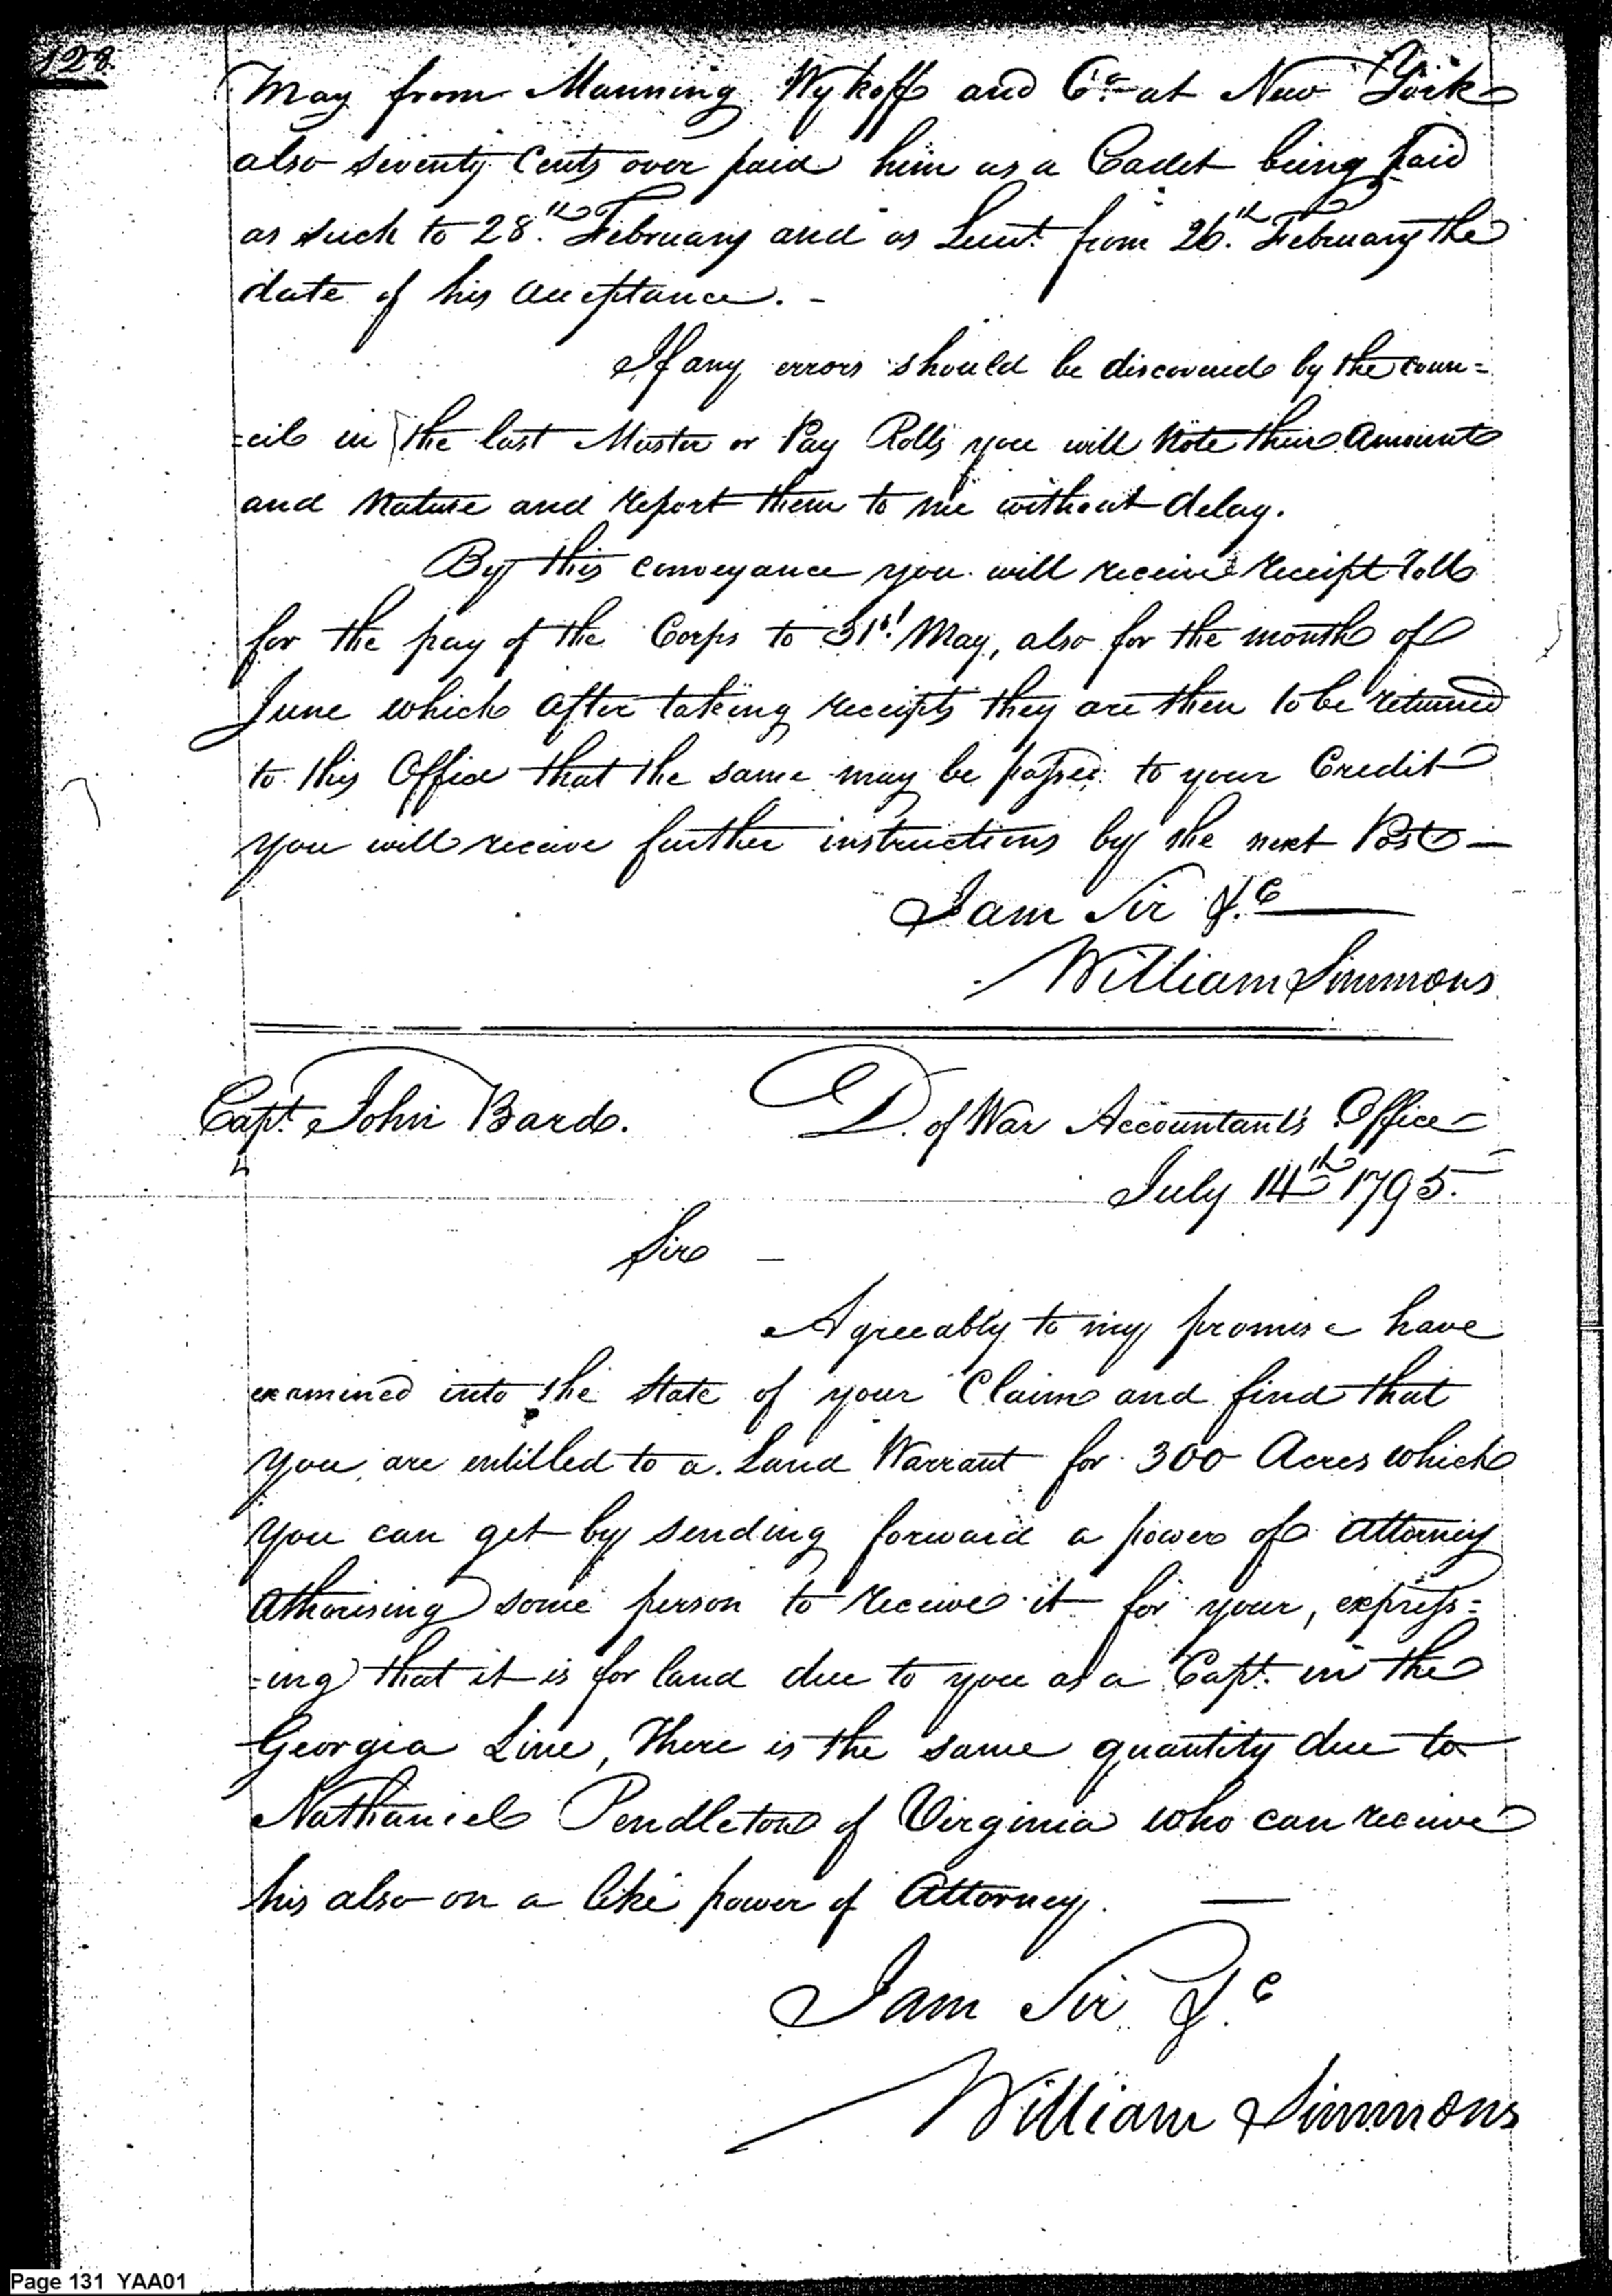 128.
May from Manning Wykoff and Co. at New York
also seventy Cents over paid him as a Cadet being paid
as such to 28.th February and as Lieut. from 26.th February the
date of his acceptance. -
If any errors should be discovered by the coun=
=cil in the last Muster or Pay Rolls you will Note their Amount
and Nature and report them to me without delay.
By this conveyance you will receive receipt Rolls
for the pay of the Corps to 31st. May, also for the month of
June which after taking receipts they are then to be returned
to this Office that the same may be passed to your Credit
you will receive further instructions by the next Post —
I am Sir &.c
William Simmons
Capt. John Bard.
D. of War Accountant's Office
July 14th 1795.
Sir —
Agreeably to my promise have
examined into the State of your Claim and find that
you are entitled to a Land Warrant for 300 Acres which
you can get by sending forward a power of Attorney
Athorising some person to receive it for your, express=
=ing that it is for land due to you as a Capt. in the
Georgia Line, There is the same quantity due to
Nathaniel Pendleton of Virginia who can receive
his also on a like power of Attorney. —
I am Sir &.c
William Simmons
Page 131 YAA01